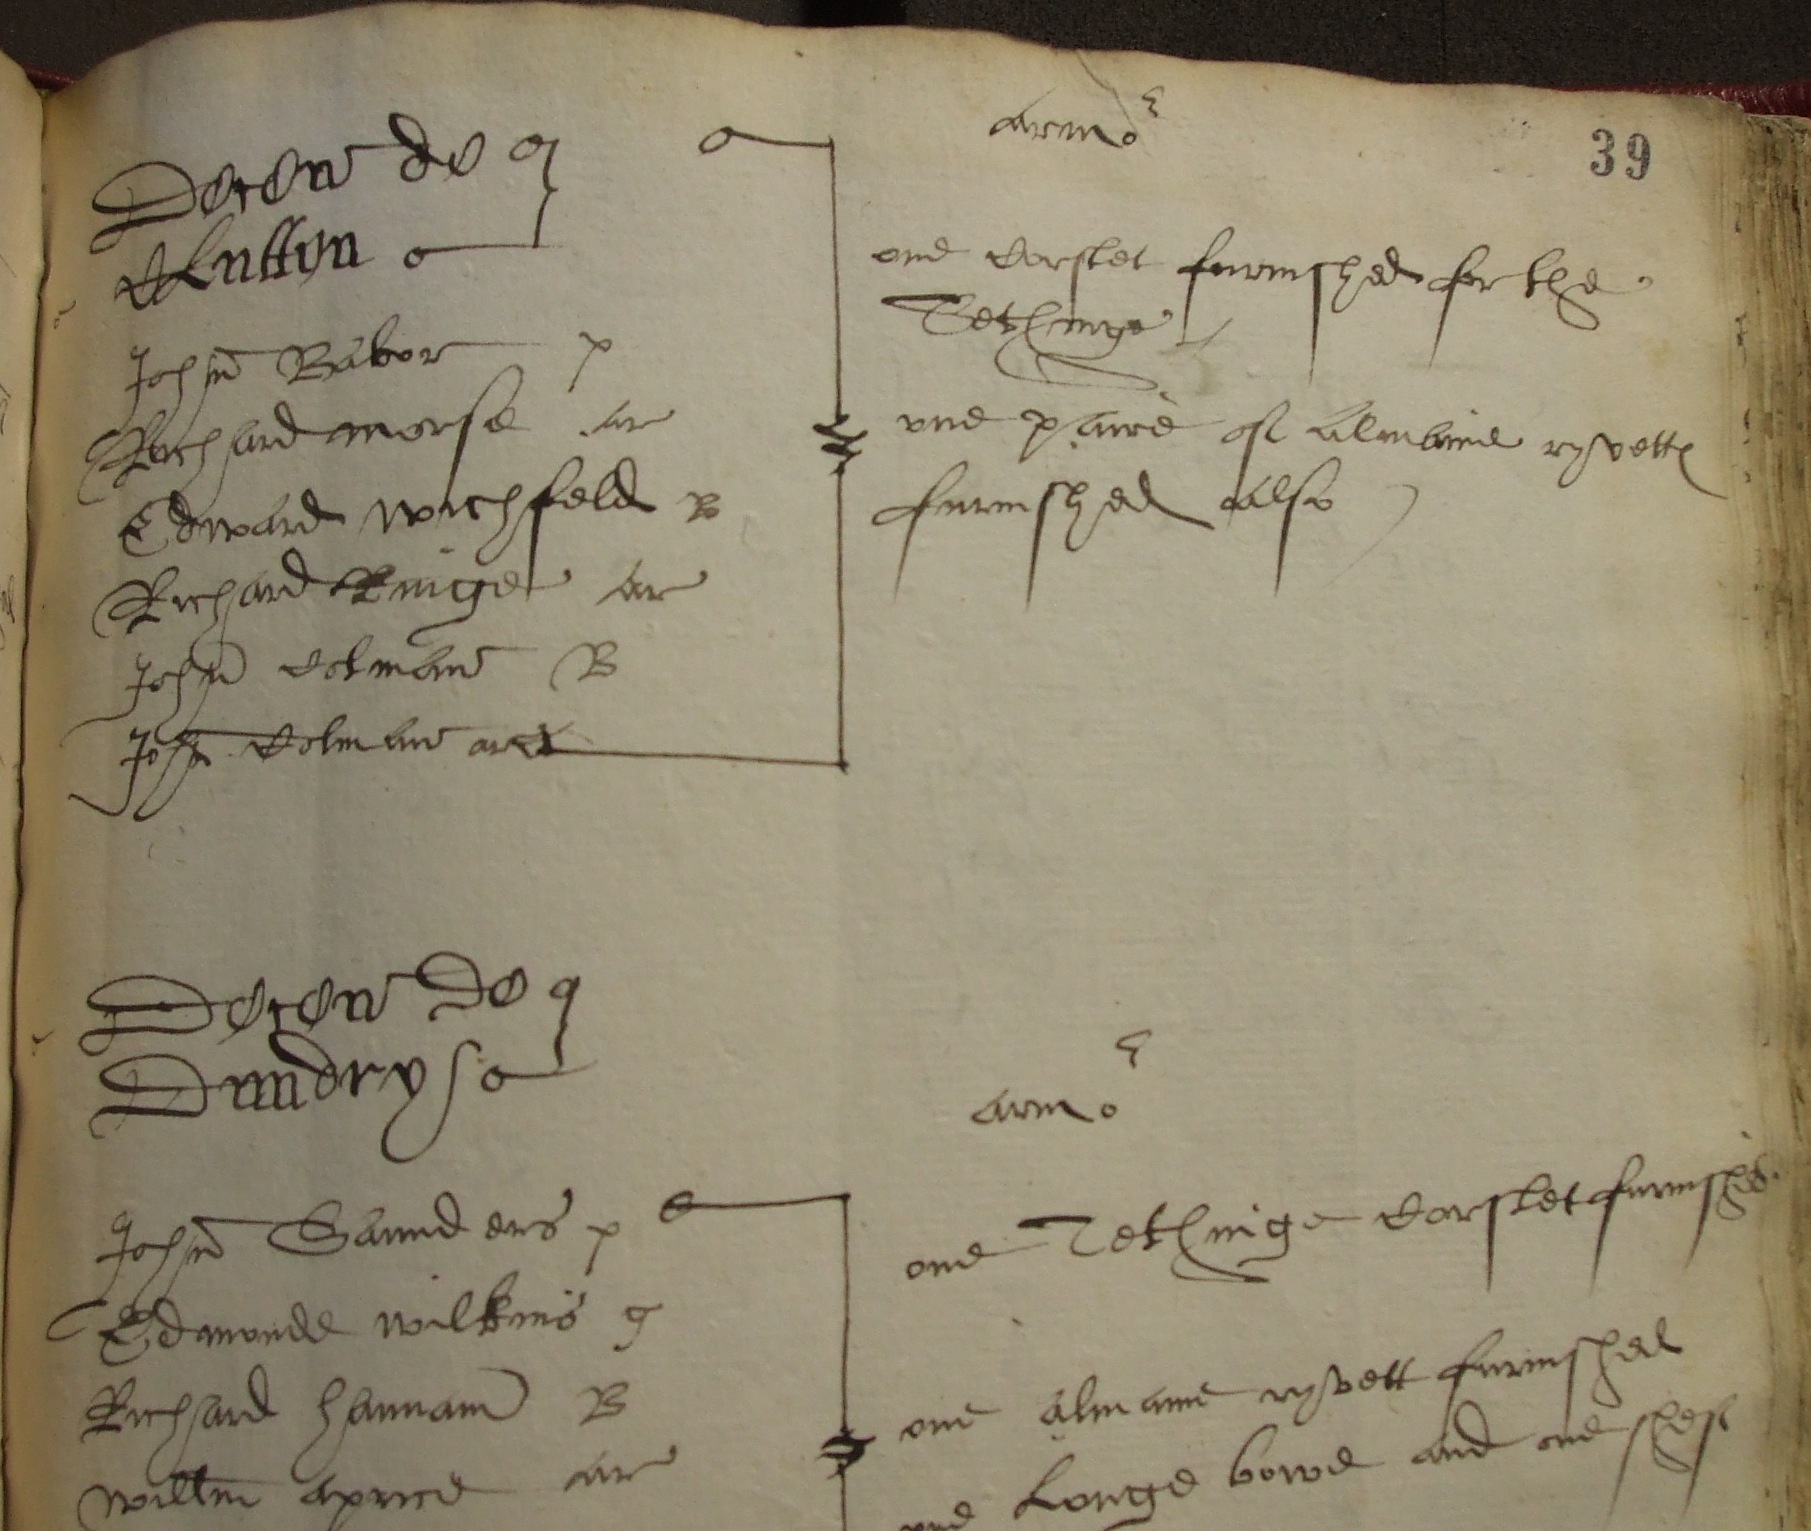 39
Decen de
Clutton
armo
John Babor p
Richard morse ar
Edward wichfeld B
Richard Kinge ar
John Colman B
John Colman ar
one Corslet furnished for the
Tethinge
one paire of Almaine ryvettes
furnished also
Decen De
Dundry
armo
John Saunders p
Edmonde wilkins g
Richard hannam B
willm aprice ar
one Tethinge Corslet furnished
one Almaine ryvett furnished
one Longe bowe and one shef